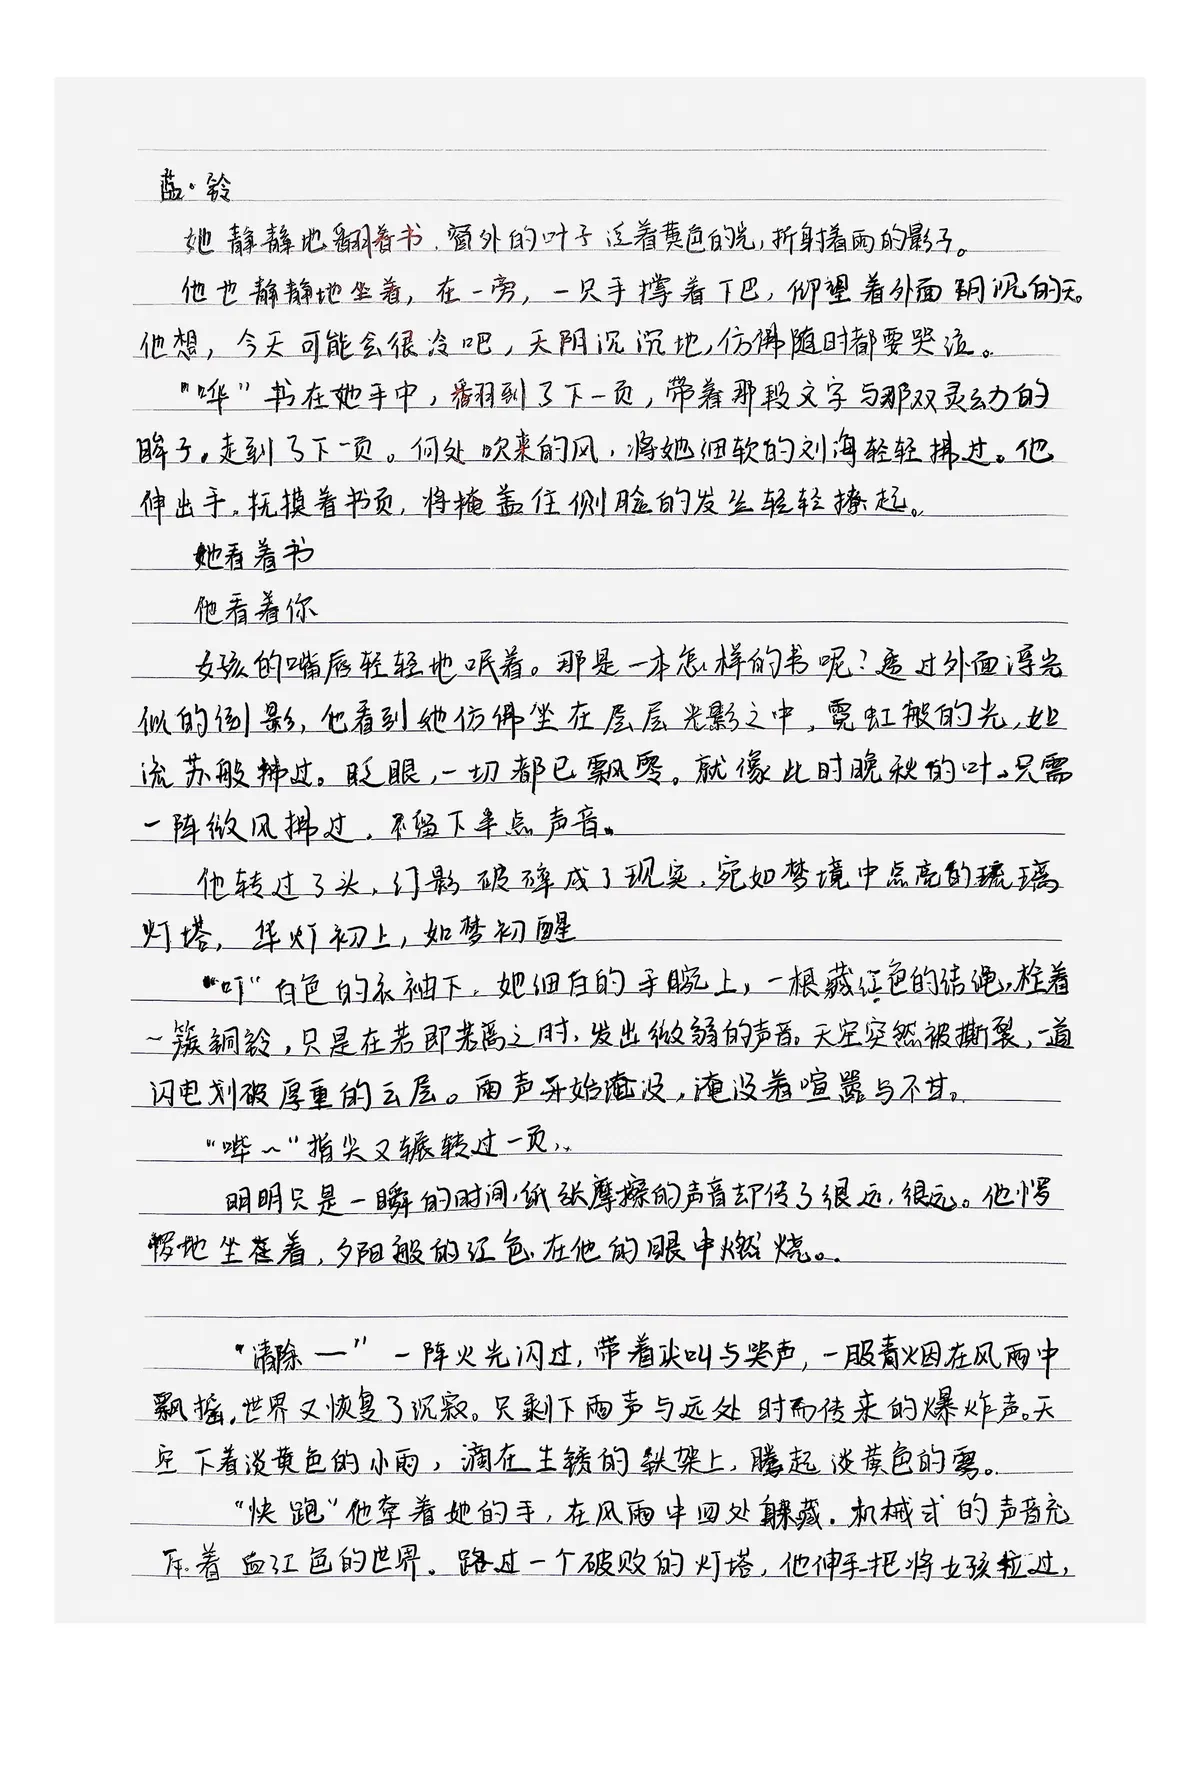 蓝·铃
她静静地翻着书.窗外的叶子泛着黄色的光,折射着雨的影子。
他也静静地坐着,在一旁,一只手撑着下巴,仰望着外面阴沉的天。
他想,今天可能会很冷吧,天阴沉沉地,仿佛随时都要哭泣。
“哗”书在她手中,翻到了下一页,带着那段文字与那双灵动的
眸子。走到了下一页。何处吹来的风,将她细软的刘海轻轻拂过。他
伸出手.抚摸着书页,将掩盖住侧脸的发丝轻轻撩起。
她看着书
他看着你
女孩的嘴唇轻轻地咬着。那是一本怎样的书呢?透过外面浮光
似的倒影,他看到她仿佛坐在层层光影之中,霓虹般的光,如
流苏般拂过。眨眼,一切都已飘零。就像此时晚秋的叶,只需
一阵微风拂过,不留下半点声音。
他转过了头,幻影破碎成了现实,宛如梦境中点亮的琉璃
灯塔,华灯初上,如梦初醒
“叮”白色的衣袖下,她细白的手腕上,一根藏红色的结绳,栓着
一簇铜铃,只是在若即若离之时,发出微弱的声音。天空突然被撕裂,一道
闪电划破厚重的云层。雨声开始淹没,淹没着喧嚣与不甘。
“哗~”指尖又辗转过一页,
明明只是一瞬的时间,纸张摩擦的声音却传了很远,很远。他愕
愕地坐着,夕阳般的红色在他的眼中燃烧。
“清除一”一阵火光闪过,带着尖叫与哭声,一股青烟在风雨中
飘摇.世界又恢复了沉寂。只剩下雨声与远处时而传来的爆炸声。天
空下着淡黄色的小雨,滴在生锈的铁架上,腾起淡黄色的雾。
“快跑”他牵着她的手,在风雨中四处躲藏.机械式的声音充
斥着血红色的世界。路过一个破败的灯塔,他伸手把将女孩拉过,